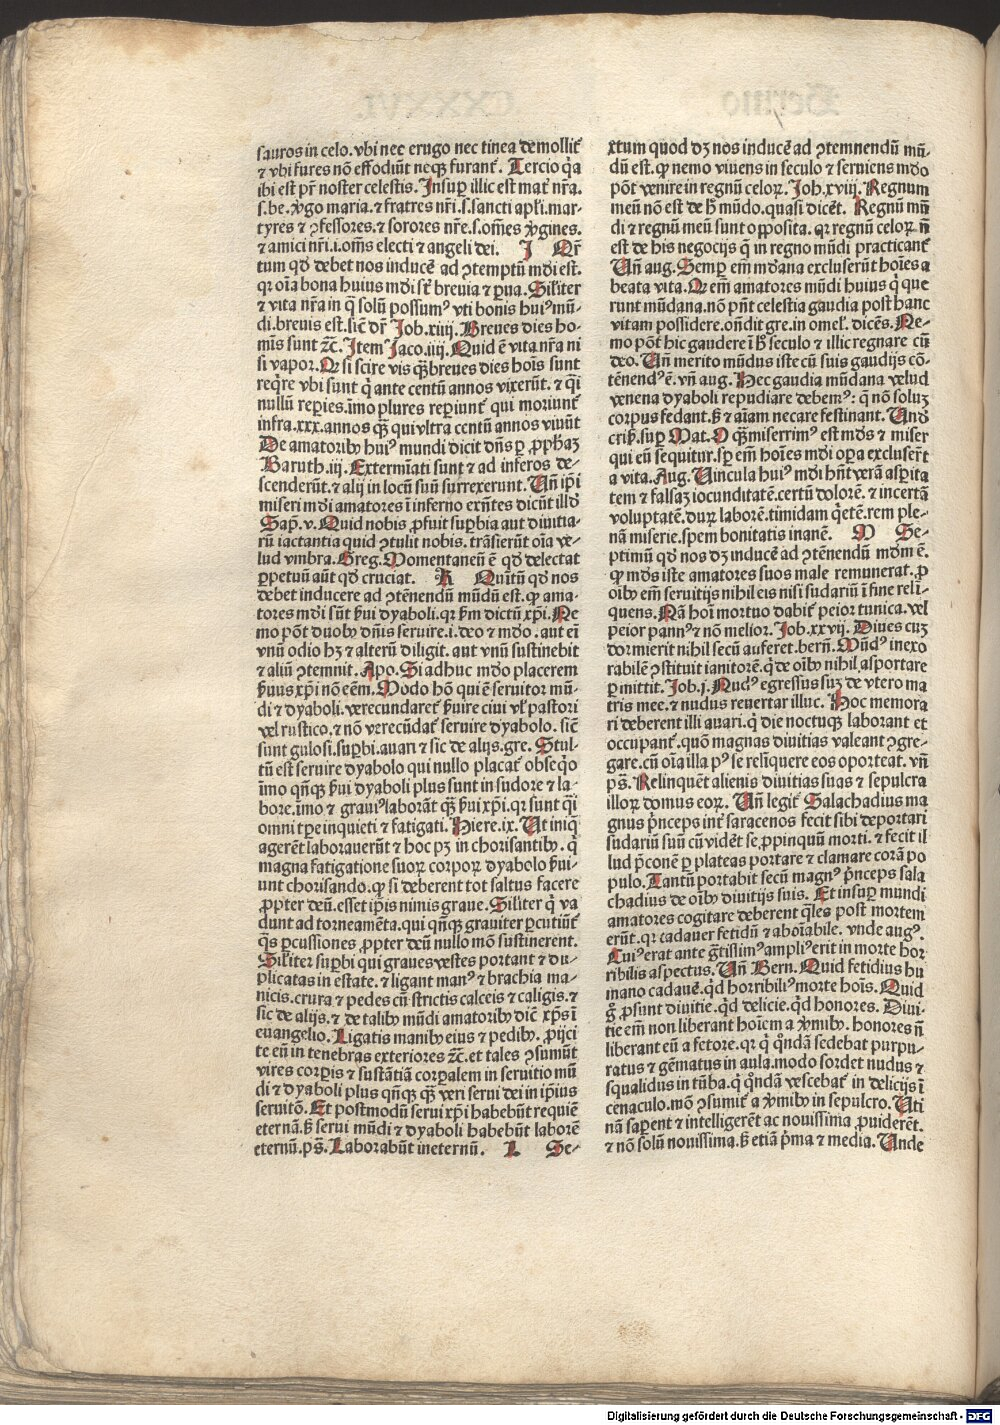 sauros in celo. vbi nec erugo nec tinea demollit᷑
⁊ vbi fures nō effodiūt neqꝫ furant᷑. Tercio q̇a
ibi est pr̄ noster celestis. Insuꝑ illic est mat᷑ nr̄a.
s. be. v̾go maria. ⁊ fratres nr̄i. s. sancti apl̄i. mar-
tyres ⁊ ꝯfessores. ⁊ sorores nr̄e. s. om̄es v̾gines.
⁊ amici nr̄i. i. om̄s electi ⁊ angeli dei. I Qr̄
tum qd̛ debet nos induce᷑ ad ꝯtemptū mūdi est.
qꝛ oīa bona huius mūdi sūt breuia ⁊ ꝑua. Silīter
⁊ vita nr̄a in q̄ solū possumꝰ vti bonis huiꝰ mū-
di. breuis est. sic̄ dr̄ Job. xiiij. Breues dies ho-
mīs sunt ⁊c̄. Item Jaco. iiij. Quid ē vita nr̄a ni
si vapor. Qr̄ si scire vis qꝙ breues dies hoīs sunt
req̄re vbi sunt q̇ ante centū annos vixerūt. ⁊ q̇i
nullū reꝑies. īmo plures reꝑiunt᷑ qui moriunt᷑
infra. xxx. annos qꝙ qui vltra centū annos viuūt
De amatoribꝰ huiꝰ mundi dicit dn̄s ꝑ ꝓphaꝫ
Baruth. iij. Extermīati sunt ⁊ ad inferos de-
scenderūt. ⁊ alij in locū suū surrexerunt. Un̄ ip̄i
miseri mūdi amatores ī inferno exn̄tes dicūt illd̛
Sap̄. v. Quid nobis ꝓfuit suꝑbia aut diuitia-
rū iactantia quid ꝯtulit nobis. trāsierūt oīa ve-
lud vmbra. Greg. Momentaneū ē qd̛ delectat
ꝑpetuū aūt qd̛ cruciat. K Quītū qd̛ nos
debet inducere ad ꝯtenendū mūdū est. qꝛ ama-
tores mūdi sūt ẜui dyaboli. qꝛ ẜm dictū xp̄i. Ne
mo pōt duobꝰ dn̄is seruire. i. deo ⁊ mūdo. aut eī
vnū odio hꝫ ⁊ alterū diligit. aut vnū sustinebit
⁊ aliū ꝯtemnit. Apo. Si adhuc mūdo placerem
ẜuus xp̄i nō eēm. Modo hō qui ē seruitor mū-
di ⁊ dyaboli. verecundaret᷑ ẜuire ciui vl̄ pastori
vel rustico. ⁊ nō verecūdat᷑ seruire dyabolo. sic̄
sunt gulosi. suꝑbi. auari ⁊ sic de alijs. gre. Stul-
tū est seruire dyabolo qui nullo placat᷑ obseq̇o
īmo qn̄qꝫ ẜui dyaboli plus sunt in sudore ⁊ la-
bore. īmo ⁊ grauiꝰ laborāt qꝙ ẜui xp̄i. qꝛ sunt q̇i
omni tꝑe inquieti ⁊ fatigati. Hiere. ix. Ut iniq̄
agerēt laborauerūt ⁊ hoc pꝫ in chorisantibꝰ. q̇
magna fatigatione suoꝝ corpoꝝ dyabolo ẜui-
unt chorisando. qꝛ si deberent tot saltus facere
ꝓpter deū. esset ip̄is nimis graue. Silīter q̇ va
dunt ad torneamēta. qui qn̄qꝫ grauiter ꝑcutiūt᷑
q̄s ꝑcussiones ꝓpter deū nullo mō sustinerent.
Silīter suꝑbi qui graues vestes portant ⁊ du-
plicatas in estate. ⁊ ligant manꝰ ⁊ brachia ma-
nicis. crura ⁊ pedes cū strictis calceis ⁊ caligis. ⁊
sic de alijs. ⁊ de talibꝰ mūdi amatoribꝰ dic̄ xp̄s ī
euangelio. Ligatis manibꝰ eius ⁊ pedibꝰ. ꝓijci
te eū in tenebras exteriores ⁊c̄. et tales ꝯsumūt
vires corꝑis ⁊ sustātiā corꝑalem in seruitio mū
di ⁊ dyaboli plus qn̄qꝫ qꝙ veri serui dei in ip̄ius
seruitō. Et postmodū serui xp̄i habebūt requiē
eternā. ẜ serui mūdi ⁊ dyaboli habebūt laborē
eternū. ps̄. Laborabūt ineternū. L Se-
xtum quod dꝫ nos induce᷑ ad ꝯtemnendū mū-
dū est. qꝛ nemo viuens in seculo ⁊ seruiens mūdo
pōt venire in regnū celoꝝ. Joh. xviij. Regnum
meū nō est de h̄ mūdo. quasi dicēt. Regnū mū
di ⁊ regnū meū sunt opposita. qꝛ regnū celoꝝ n̄
est de his negocijs q̄ in regno mūdi practicant᷑
Un̄ aug. Semꝑ em̄ mūdana excluserūt hoīes a
beata vita. Qr̄ em̄ amatores mūdi huius q̇ que
runt mūdana. nō pn̄t celestia gaudia post hanc
vitam possidere. on̄dit gre. in omel̄. dicēs. Ne-
mo pōt hic gaudere ī h̄ seculo ⁊ illic regnare cū
deo. Un̄ merito mūdus iste cū suis gaudijs cō-
tēnendꝰ ē. vn̄ aug. Hec gaudia mūdana velud
venena dyaboli repudiare debemꝰ: q̄ nō soluꝫ
corpus fedant. ẜ ⁊ aīam necare festinant. Und̛
crisͥ. suꝑ Mat. O qꝙ miserrimꝰ est mūds ⁊ miser
qui eū sequitur. sꝑ em̄ hoīes mūdi oꝑa excluser̄t
a vita. Aug. Uincula huiꝰ mūdi hn̄t verā asꝑita
tem ⁊ falsaꝫ iocunditatē. certū dolorē. ⁊ incertā
voluptatē. duꝝ laborē. timidam q̇etē. rem ple-
nā miserie. spem bonitatis inanē. M Se-
ptimū qd̛ nos dꝫ induce᷑ ad ꝯtēnendū mūdm ē.
qꝛ mūds iste amatores suos male remunerat. ꝓ
oībꝰ em̄ seruitijs nihil eis nisi sudariū ī fine relī-
quens. Nā hoī mortuo dabit᷑ peior tunica. vel
peior pannꝰ ⁊ nō melior. Job. xxvij. Diues cuꝫ
dormierit nihil secū auferet. bern̄. Mūdꝰ inexo
rabilē ꝯstituit ianitorē. q̇ de oībꝰ nihil asportare
ꝑmittit. Job. j. Nudꝰ egressus suꝫ de vtero ma
tris mee. ⁊ nudus reuertar illuc. Hoc memora
ri deberent illi auari. q̇ die noctuqꝫ laborant et
occupant᷑. quō magnas diuitias valeant ꝯgre-
gare. cū oīa illa pꝰ se relīquere eos oporteat. vn̄
ps̄. Relinquēt alienis diuitias suas ⁊ sepulcra
illoꝝ domus eoꝝ. Un̄ legit᷑ Salachadius ma
gnus p̄nceps int᷑ saracenos fecit sibi deportari
sudariū suū cū vidēt se ꝓpinquū morti. ⁊ fecit il
lud p̄conē ꝑ plateas portare ⁊ clamare corā po
pulo. Tantū portabit secū magnꝰ p̄nceps sala
chadius de oībꝰ diuitijs suis. Et insuꝑ mundi
amatores cogitare deberent q̄les post mortem
erūt. qꝛ cadauer fetidū ⁊ aboīabile. vnde augꝰ.
Cuiꝰ erat ante gr̄tissimꝰ ampliꝰ erit in morte hor
ribilis aspectus. Un̄ Bern. Quid fetidius hu
mano cadaue᷑. qd̛ horribiliꝰ morte hoīs. Quid
gͦ ꝓsunt diuitie. qd̛ delicie. qd̛ honores. Diui-
tie em̄ non liberant hoīem a v̾mibꝰ. honores n̄
liberant eū a fetore. qꝛ q̇ qn̄dā sedebat purpu-
ratus ⁊ gēmatus in aula. modo sordet nudus ⁊
squalidus in tūba. q̇ qn̄dā vescebat᷑ in delicijs ī
cenaculo. mō ꝯsumit᷑ a v̾mibꝰ in sepulcro. Uti
nā saꝑent ⁊ intelligerēt ac nouissima ꝓuiderēt.
⁊ nō solū nouissima. ẜ etiā p̄ma ⁊ media. Unde
Digitalisierung gefördert durch die Deutsche Forschungsgemeinschaft - DFG